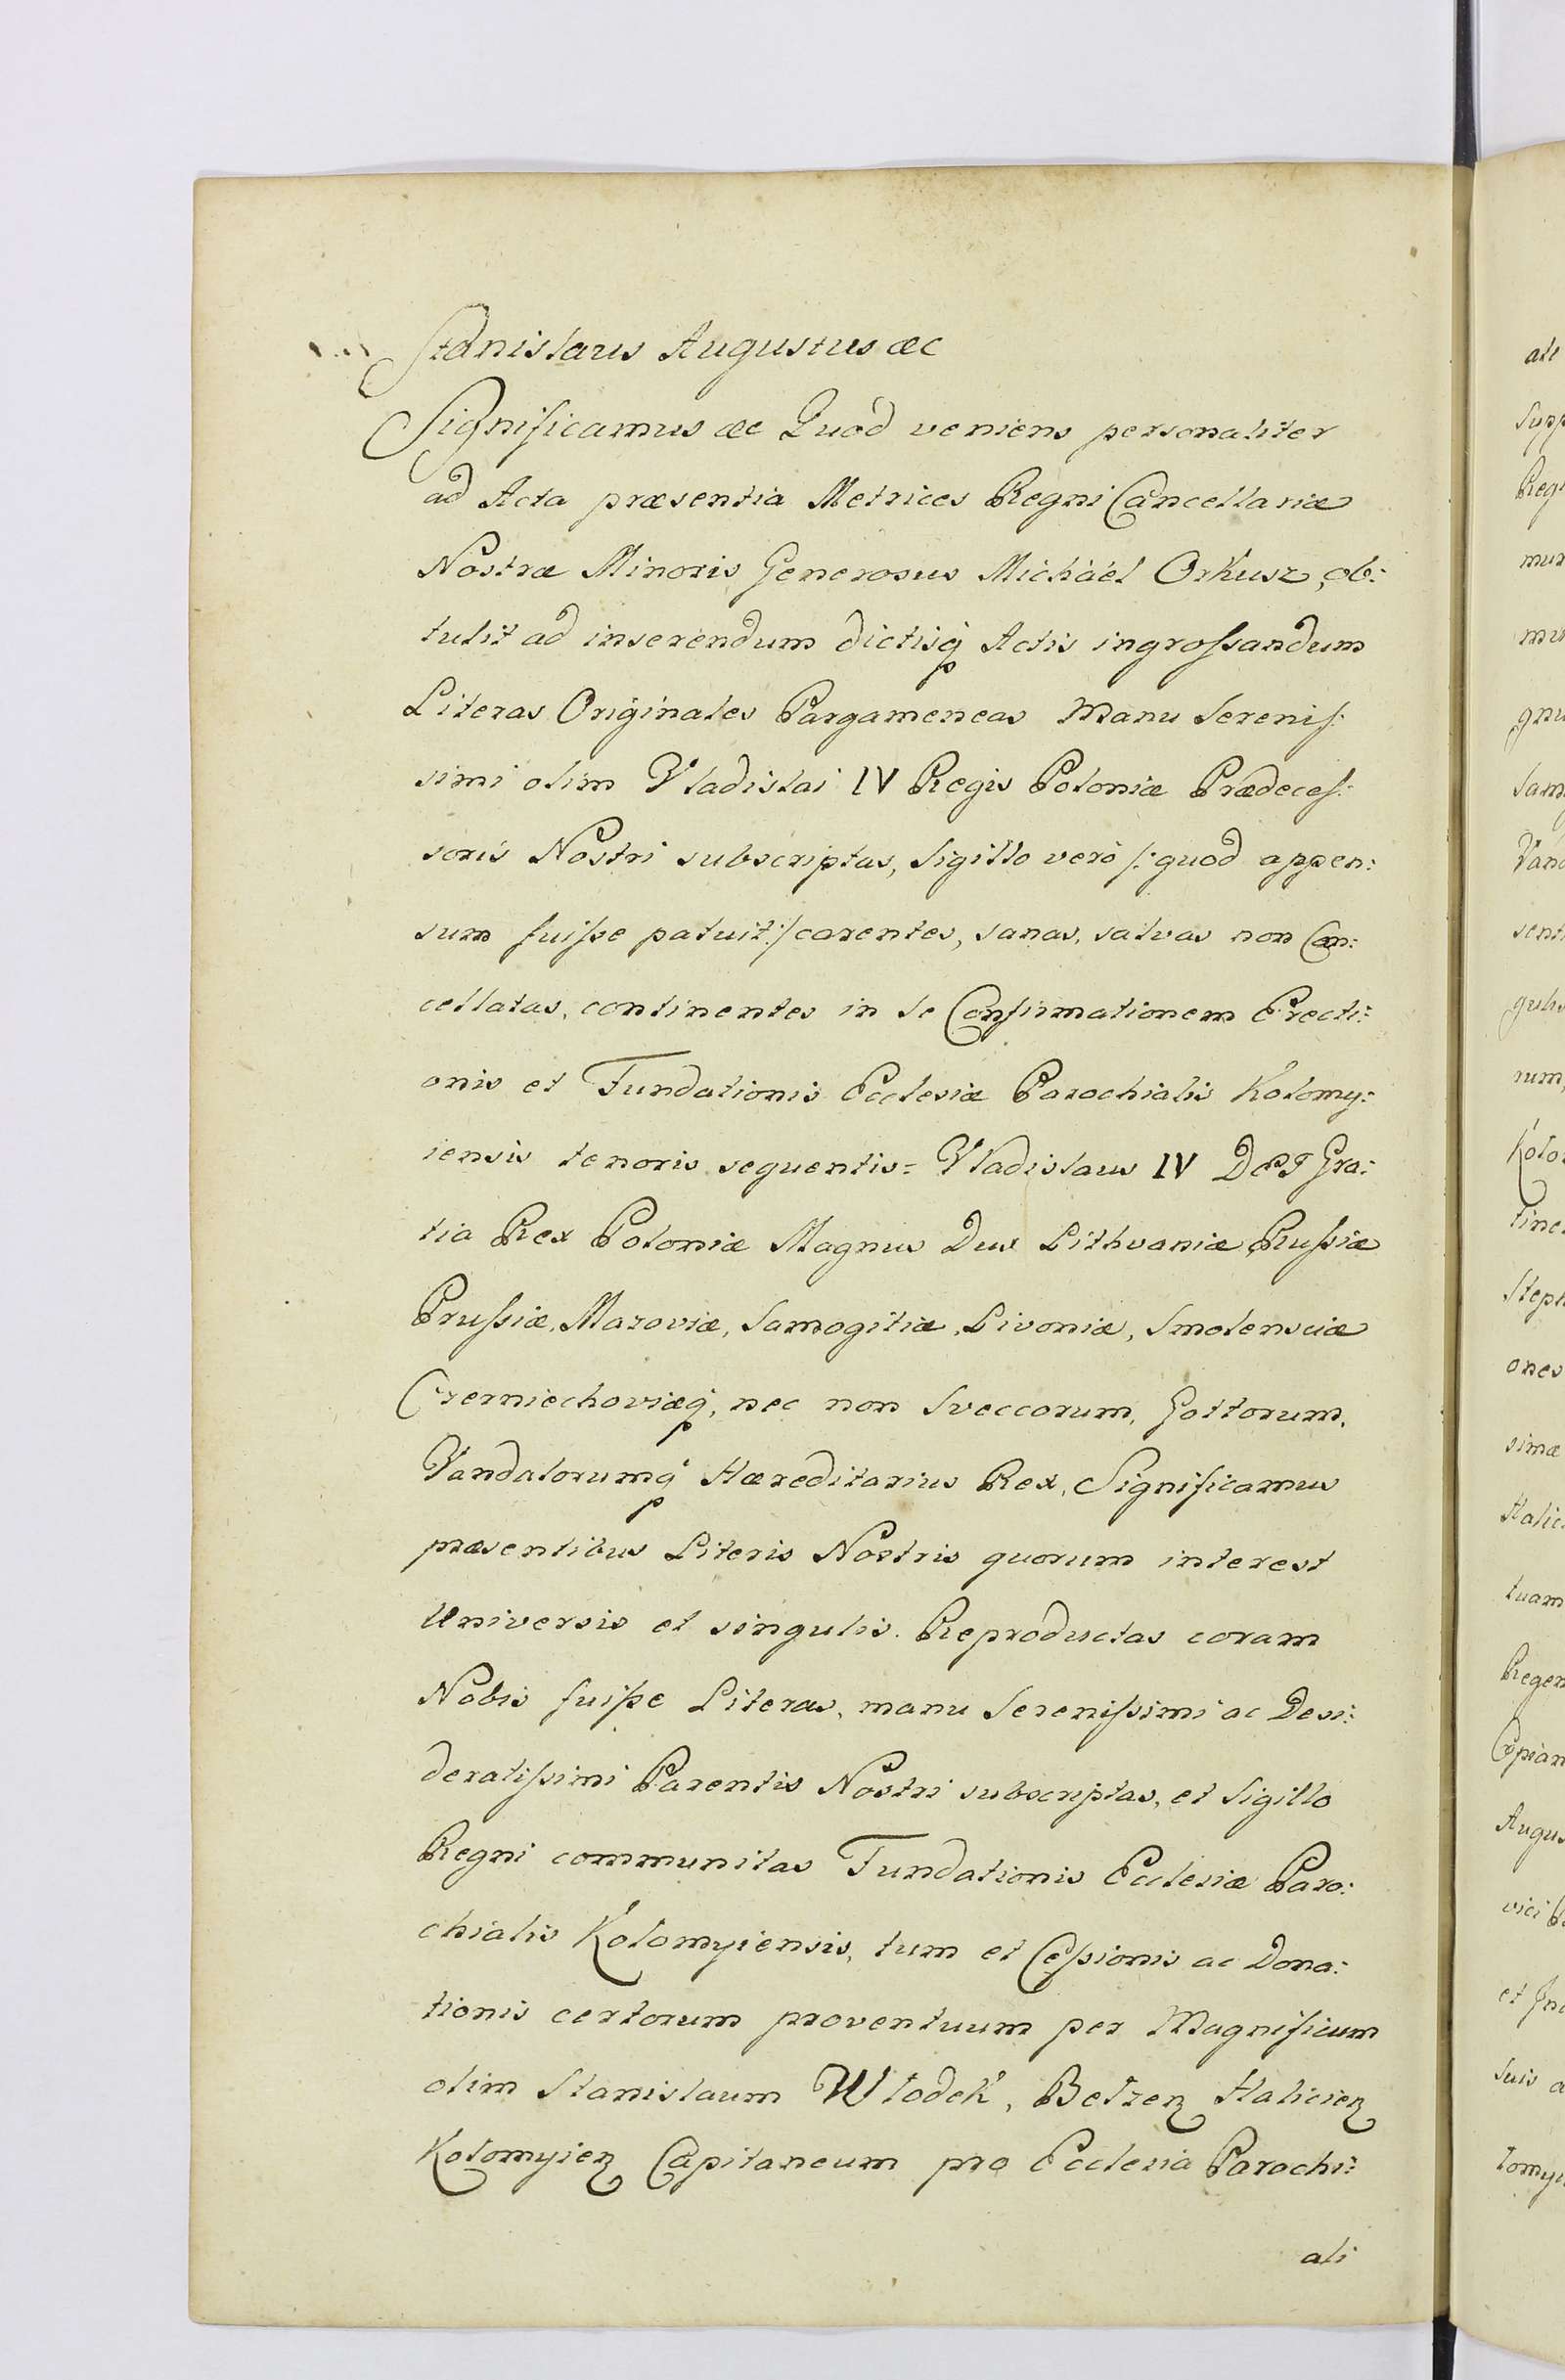 Stanislaus Augustus æc
Significamus æc Quod veniens personaliter
ad Acta præsentia Metrices Regni Cancellariæ
Nostræ Minoris Generosus Michaël Orkusz, ob:
tulit ad inserendum dictisq́ Actis ingrossandum
Literas Originales Pargameneas Manu Serenis:
simi olim Vladislai IV Regis Poloniæ Prædeces:
soris Nostri subscriptas, Sigillo verò /: quod appen:
sum fuisse patuit :/ carentes, sanas, salvas non Can:
cellatas, continentes in se Confirmationem Erecti:
onis et Fundationis Ecclesiæ Parochialis Kolomy:
iensis tenoris sequentis = Vladislaus IV DEI Gra:
tia Rex Poloniæ Magnus Dux Lithvaniæ, Russiæ
Prussiæ, Mazoviæ, Samogitiæ, Livoniæ, Smolensciæ
Czerniechoviæq́, nec non Sveccorum, Gottorum,
Vandalorumq́ Hæreditarius Rex, Significamus
præsentibus Literis Nostris quorum interest
Universis et singulis. Reproductas coram
Nobis fuisse Literas, manu Serenissimi ac Desi:
deratissimi Parentis Nostri subscriptas, et Sigillo
Regni communitas Fundationis Ecclesiæ Paro:
chialis Kolomyiensis, tum et Cessionis ac Dona:
tionis certorum proventuum per Magnificum
olim Stanislaum Wlodek, Belzen Halicien
Kolomyien Capitaneum pro Ecclesia Parochi:
ali